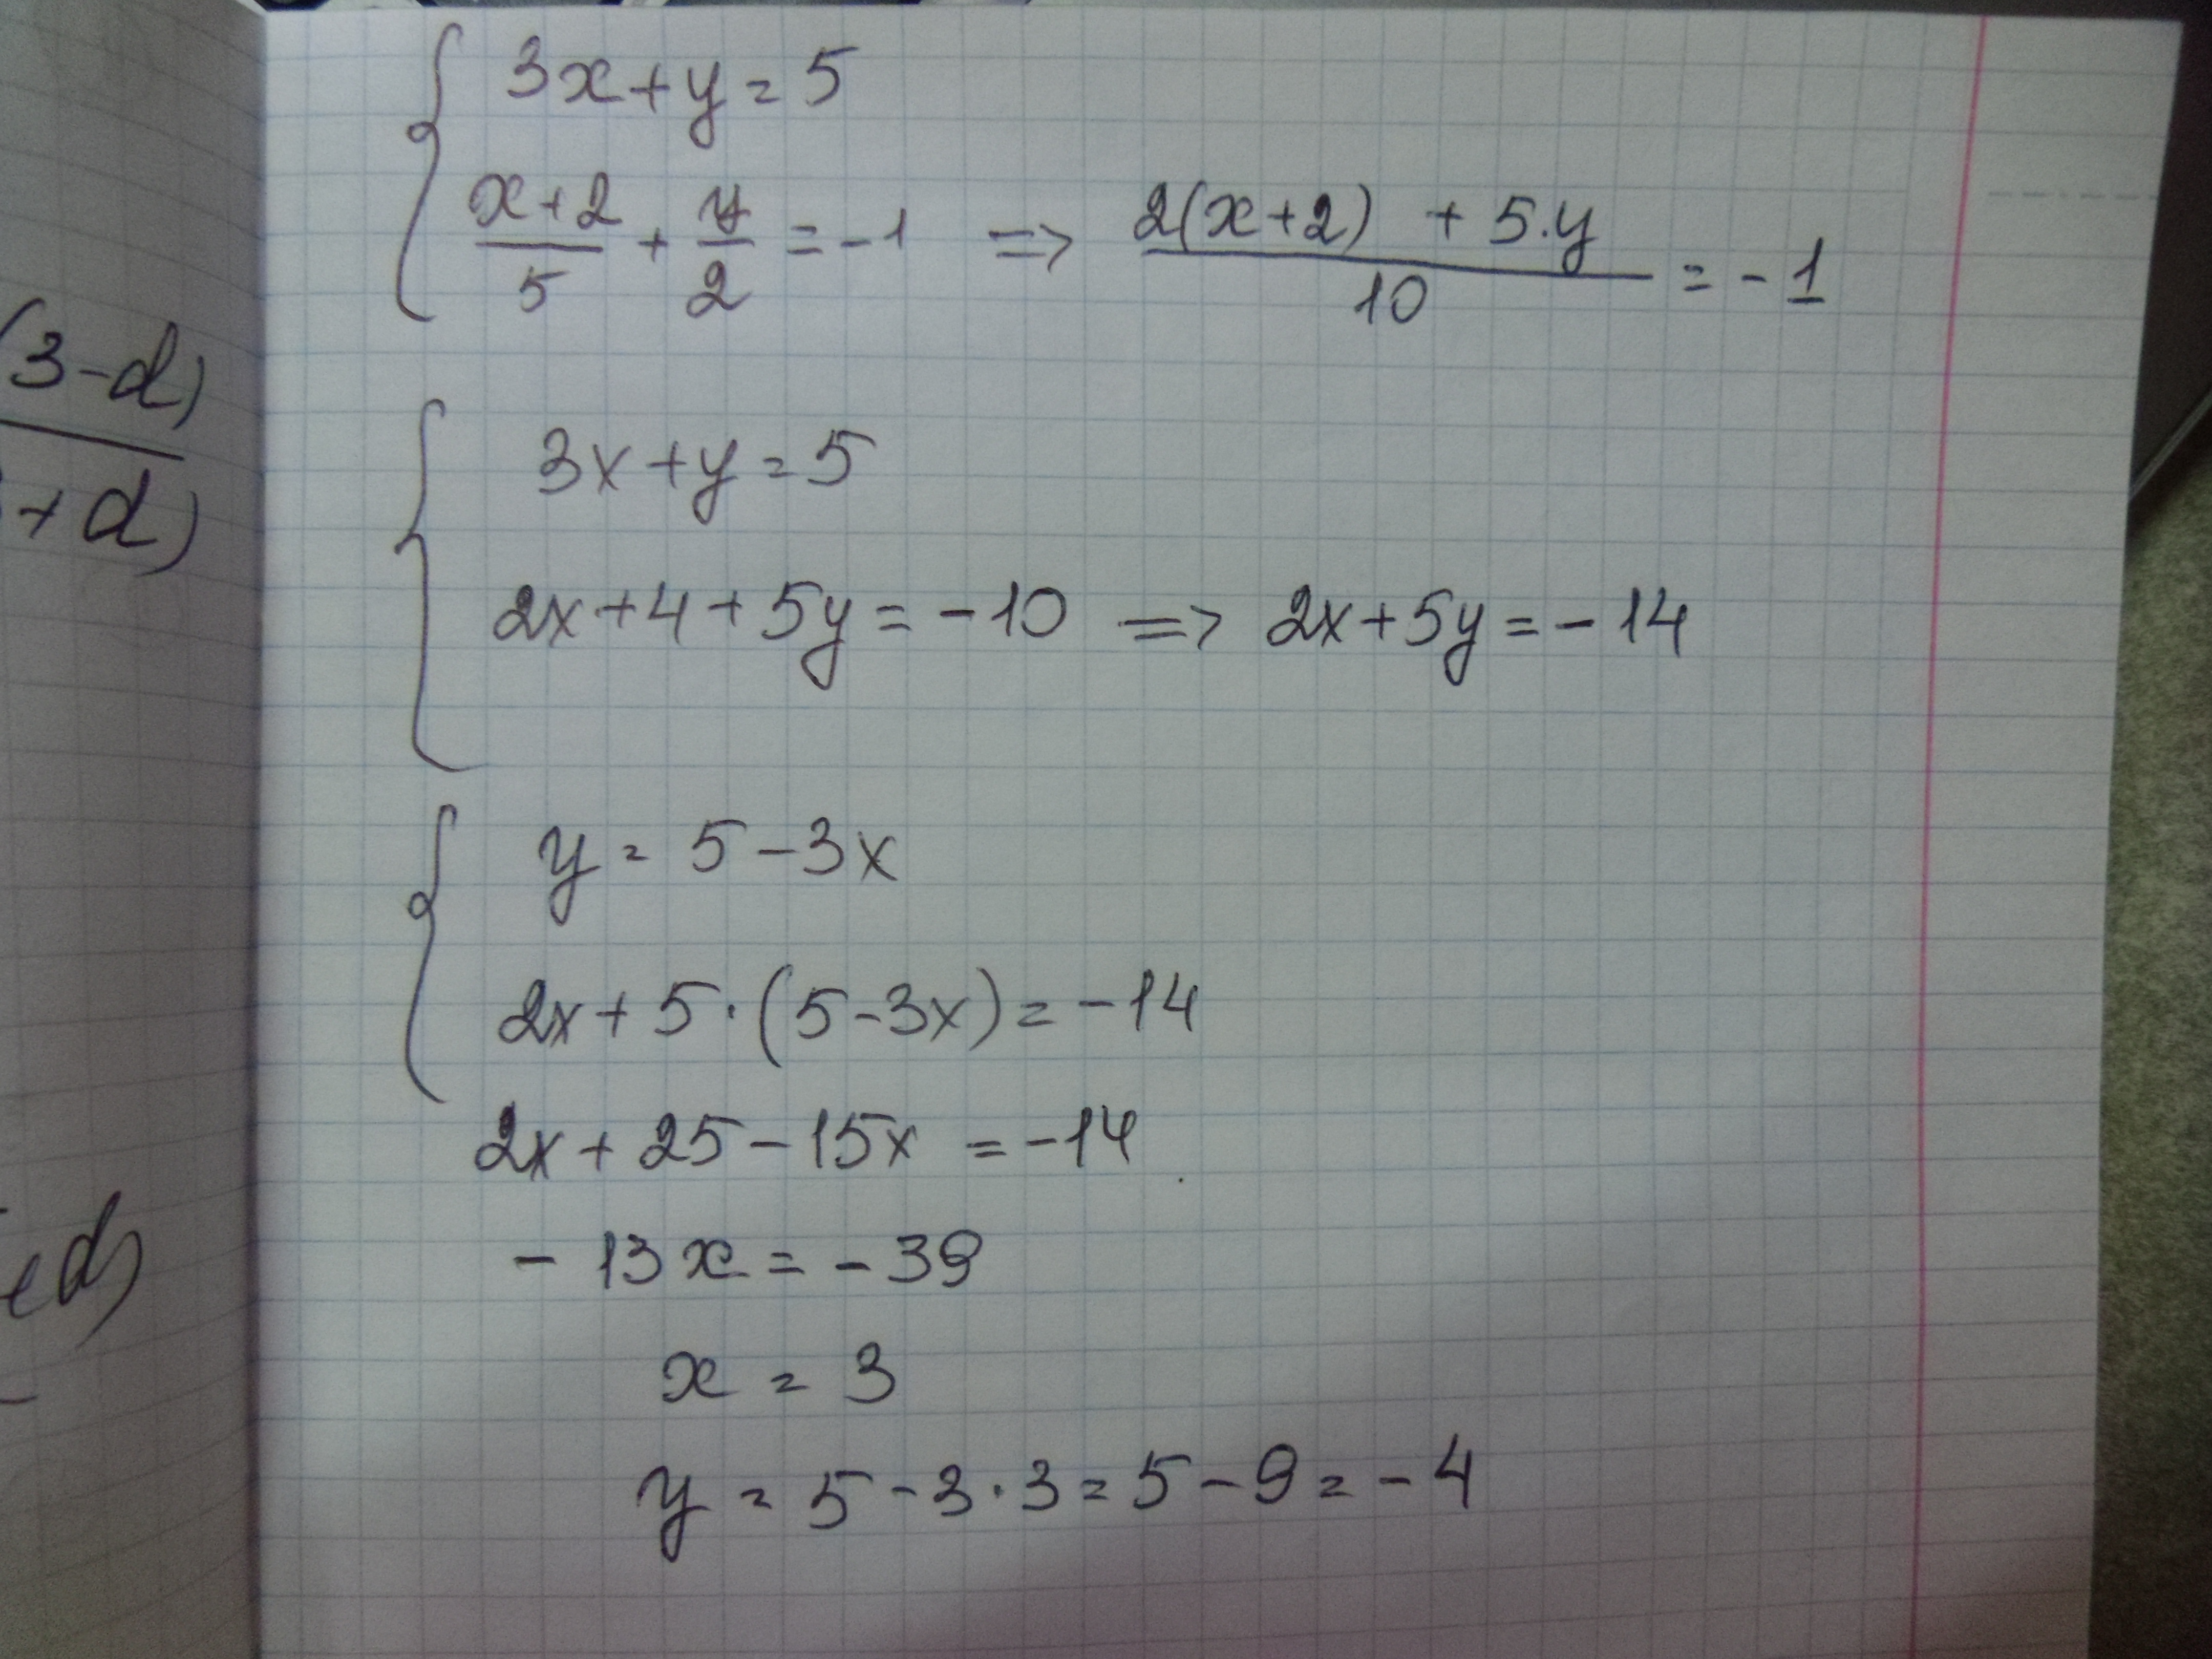 3x + y = 5
(x+2)/5 + y/2 = -1 => (2(x+2) + 5·y)/10 = -1
3x + y = 5
2x + 4 + 5y = -10 => 2x + 5y = -14
y = 5 - 3x
2x + 5·(5 - 3x) = -14
2x + 25 - 15x = -14
- 13x = - 39
x = 3
y = 5 - 3·3 = 5 - 9 = - 4
(3-d)
+d)